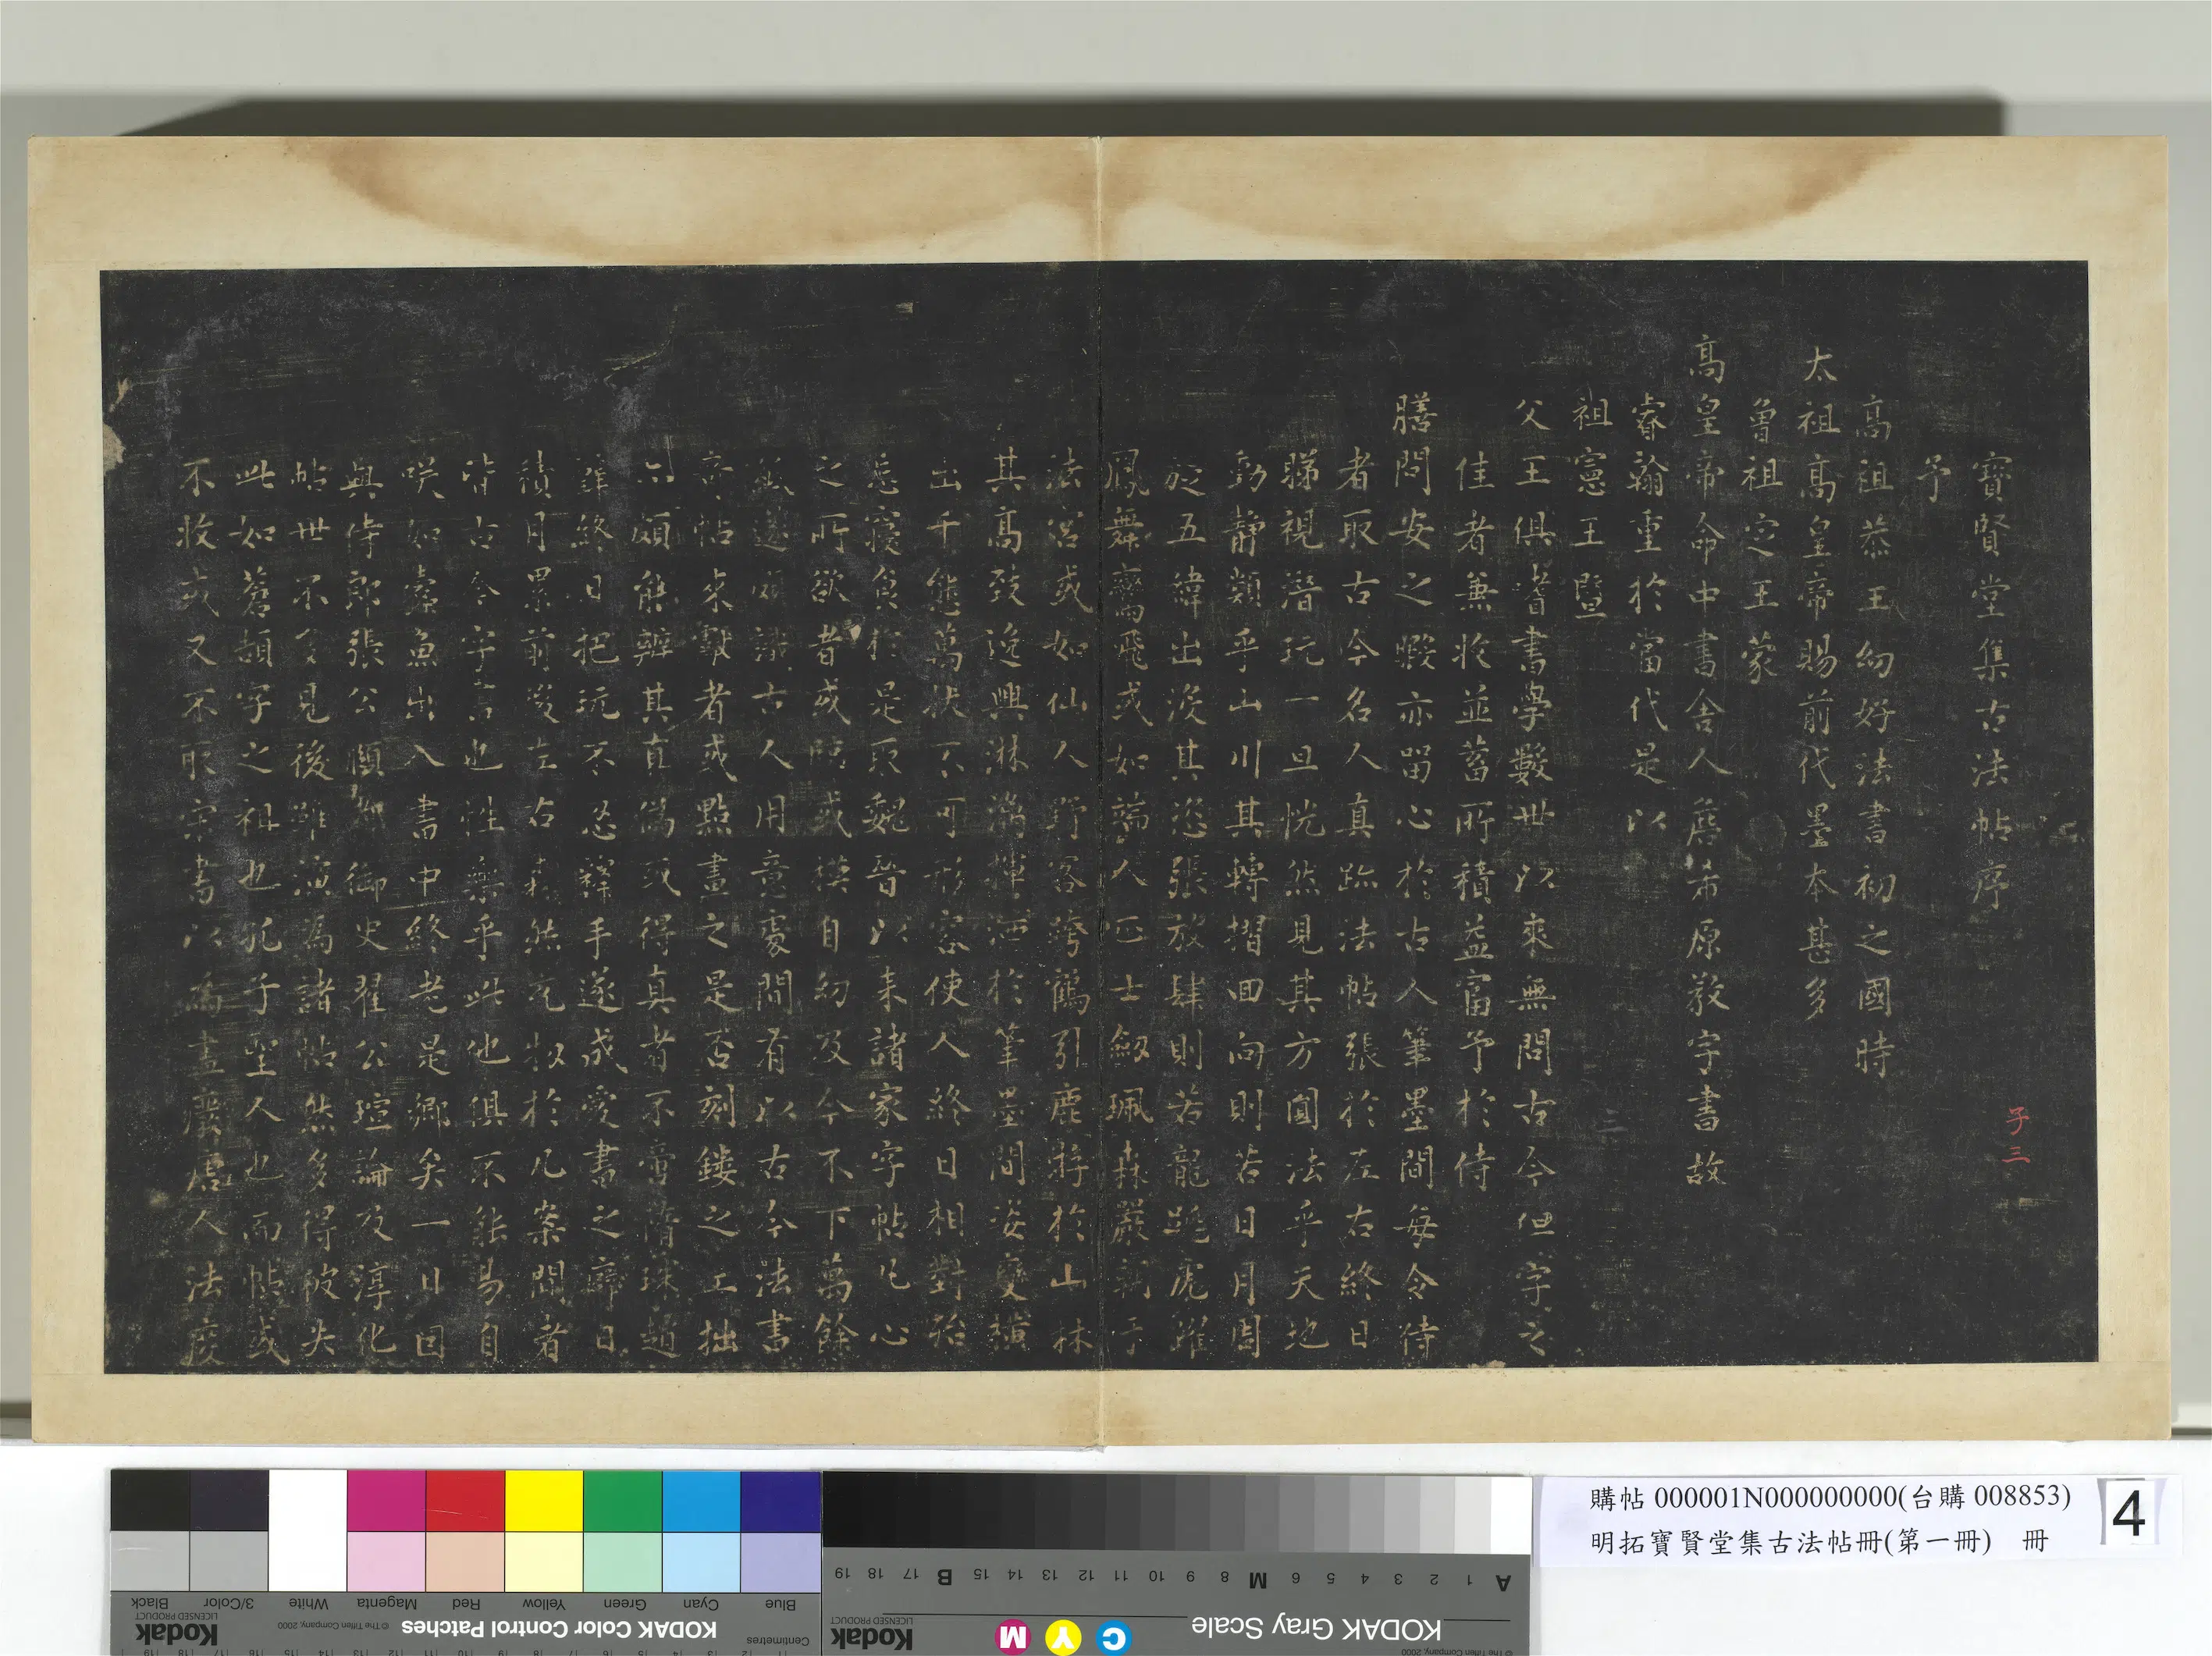 寶賢堂集古法帖序
予
高祖恭王幼好法書初之國時
太祖高皇帝賜前代墨本甚多
曾祖定王蒙
高皇帝命中書舍人詹希原教字書故
睿翰重於當代是以
祖憲王暨
父王俱耆書學數世以來無問古今但字之
佳者兼收並蓄所積益富予於侍
膳問安之暇亦留心於古人筆墨間每令侍
者取古今名人真跡法帖張於左右終日
睇視潛玩一旦恍然見其方圓法乎天地
動靜類乎山川其轉摺回向則若日月周
旋五緯出沒其恣張放肆則若龍跳虎躍
鳳舞鸞飛或如端人正士劔珮森嚴朝于
法宮或如仙人野客跨鶴引鹿游於山林
其高致逸興淋漓揮洒於筆墨間姿變橫
出千態萬狀不可形容使人終日相對殆
忘寢食於是取魏晉以來諸家字帖凡心
之所欲者或臨或摸自幼及今不下萬餘
紙遂頗識古人用意處間有以古今法書
帖來獻者或點畫之是否刻鏤之工拙
亦頗能辨其真偽或得真者不啻隋珠趙
璧終日把玩不忍釋手遂成愛書之癖日
積月累前後左右森然充牣於几案間者
皆古今字書也性樂乎此他俱不能易自
咲如蠹魚出入書中終老是鄉矣一日因
與侍郎張公頤御史翟公瑄論及淳化
帖世不多見後雖演為諸帖然多得彼失
此如蒼頡字之祖也孔子聖人也而帖或
不收或又不取宋書以為盡廢唐人法度
子三
二
購帖000001N000000000(台購008853)
明拓寶賢堂集古法帖冊(第一冊) 冊
4
Black 3/Color White Magenta Red Yellow Green Cyan Blue
Kodak
LICENSED PRODUCT
© The Tiffen Company, 2000
KODAK Color Control Patches
Centimetres
A 1 2 3 4 5 6 M 8 9 10 11 12 13 14 15 B 17 18 19
KODAK Gray Scale
C Y M
Kodak
LICENSED PRODUCT
© The Tiffen Company, 2000